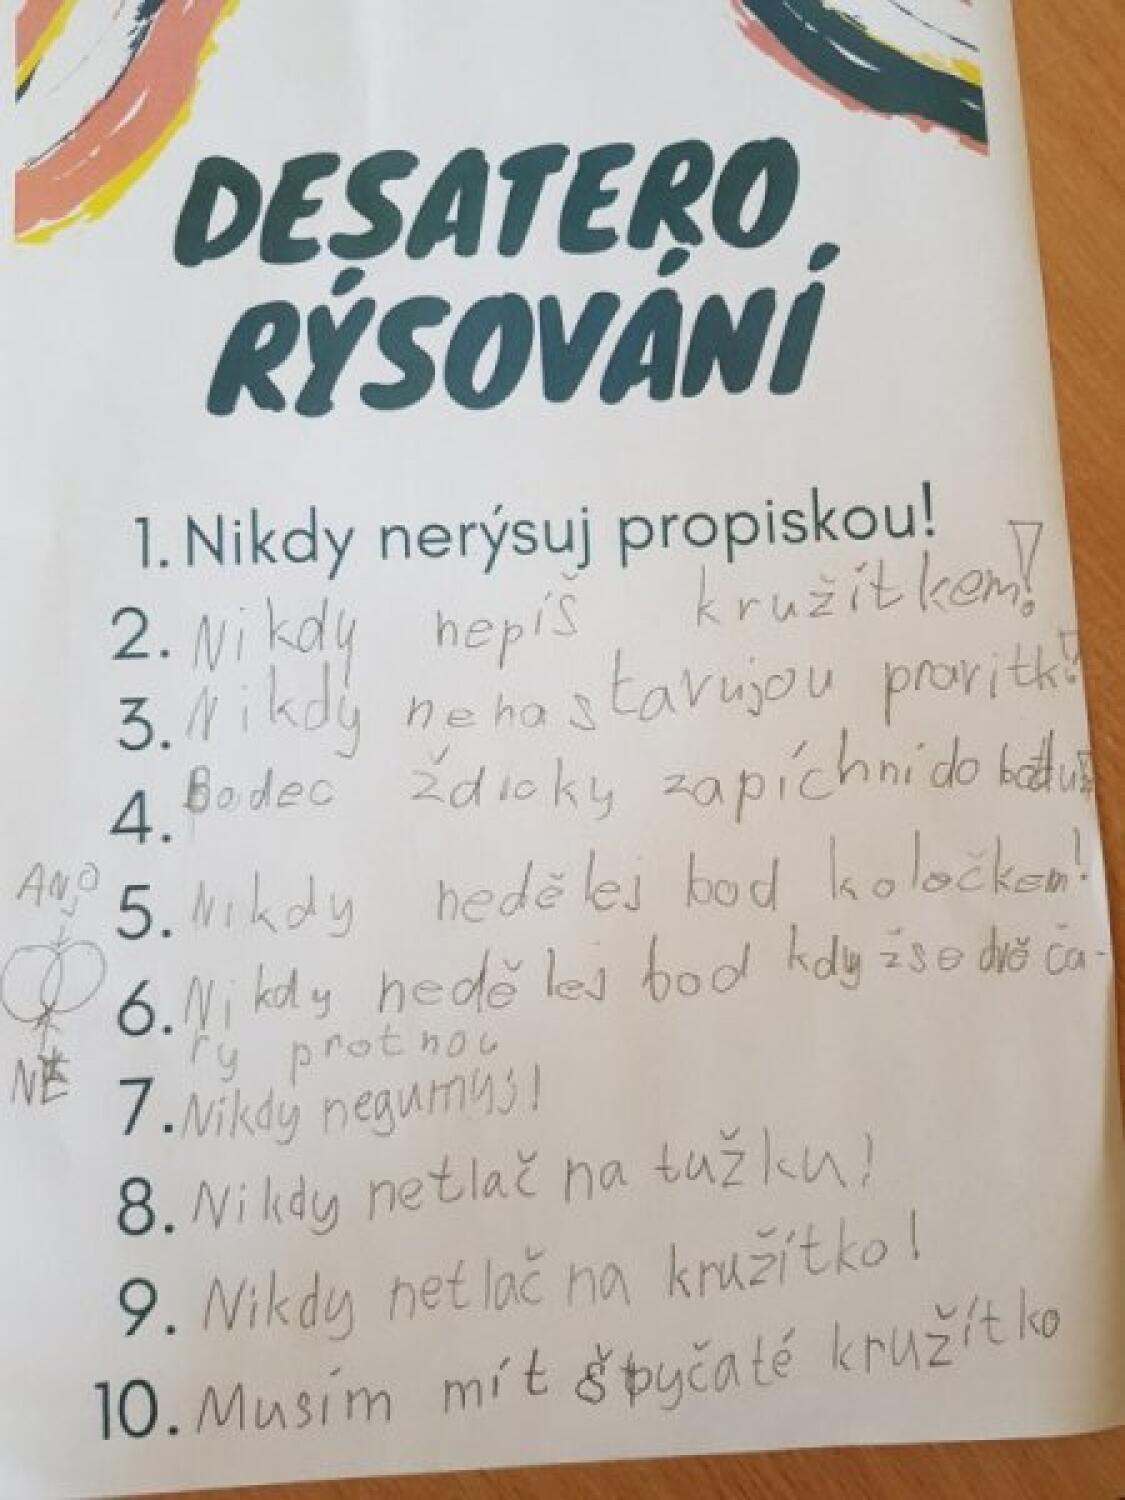 DESATERO
RÝSOVÁNÍ
1. Nikdy nerýsuj propiskou!
2. Nikdy nepíš kružítkem!
3. Nikdy nenastavujou pravitk!
4. Bodec ždicky zapíchni do bodu!
ANO
5. Nikdy nedělej bod koločkem!
6. Nikdy nedělej bod kdyžse dvě ča-
ry protnou
NE
7. Nikdy negumuj!
8. Nikdy netlač na tužku!
9. Nikdy netlač na kružítko!
10. Musím mít špyčaté kružítko